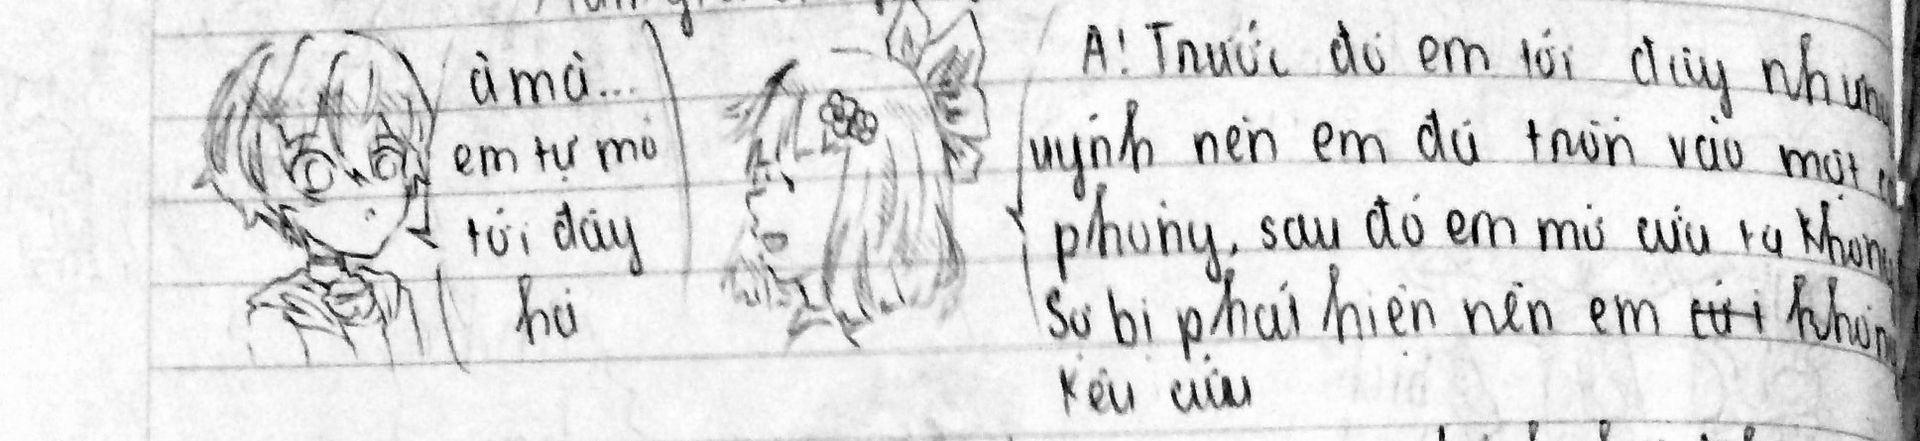 à mà...
em tự mò
tới đây
hả
A! Trước đó em tới đây nhưng
uynh nên em đã trốn vào một
phòng, sau đó em mở cửa ra không
Sợ bị phát hiện nên em tới không
kêu cứu